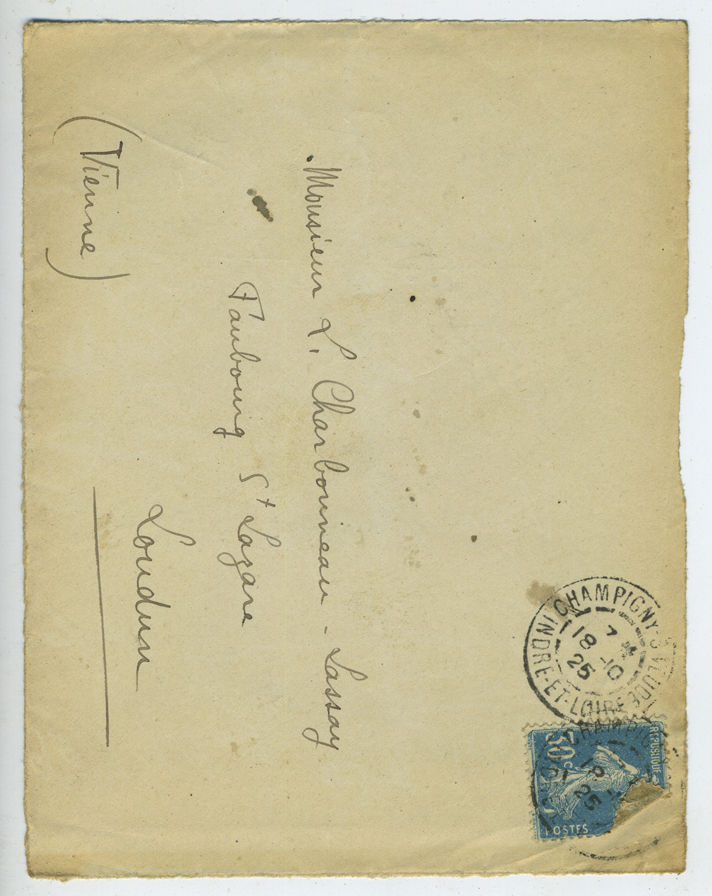 Monsieur L. Charbonneau - Lassay
Faubourg St Lazare
Loudun
(Vienne)
CHAMPIGNY-S-VEUDE
7 18-10 25
INDRE-ET-LOIRE
REPUBLIQUE
30c
POSTES
CHAMP
25